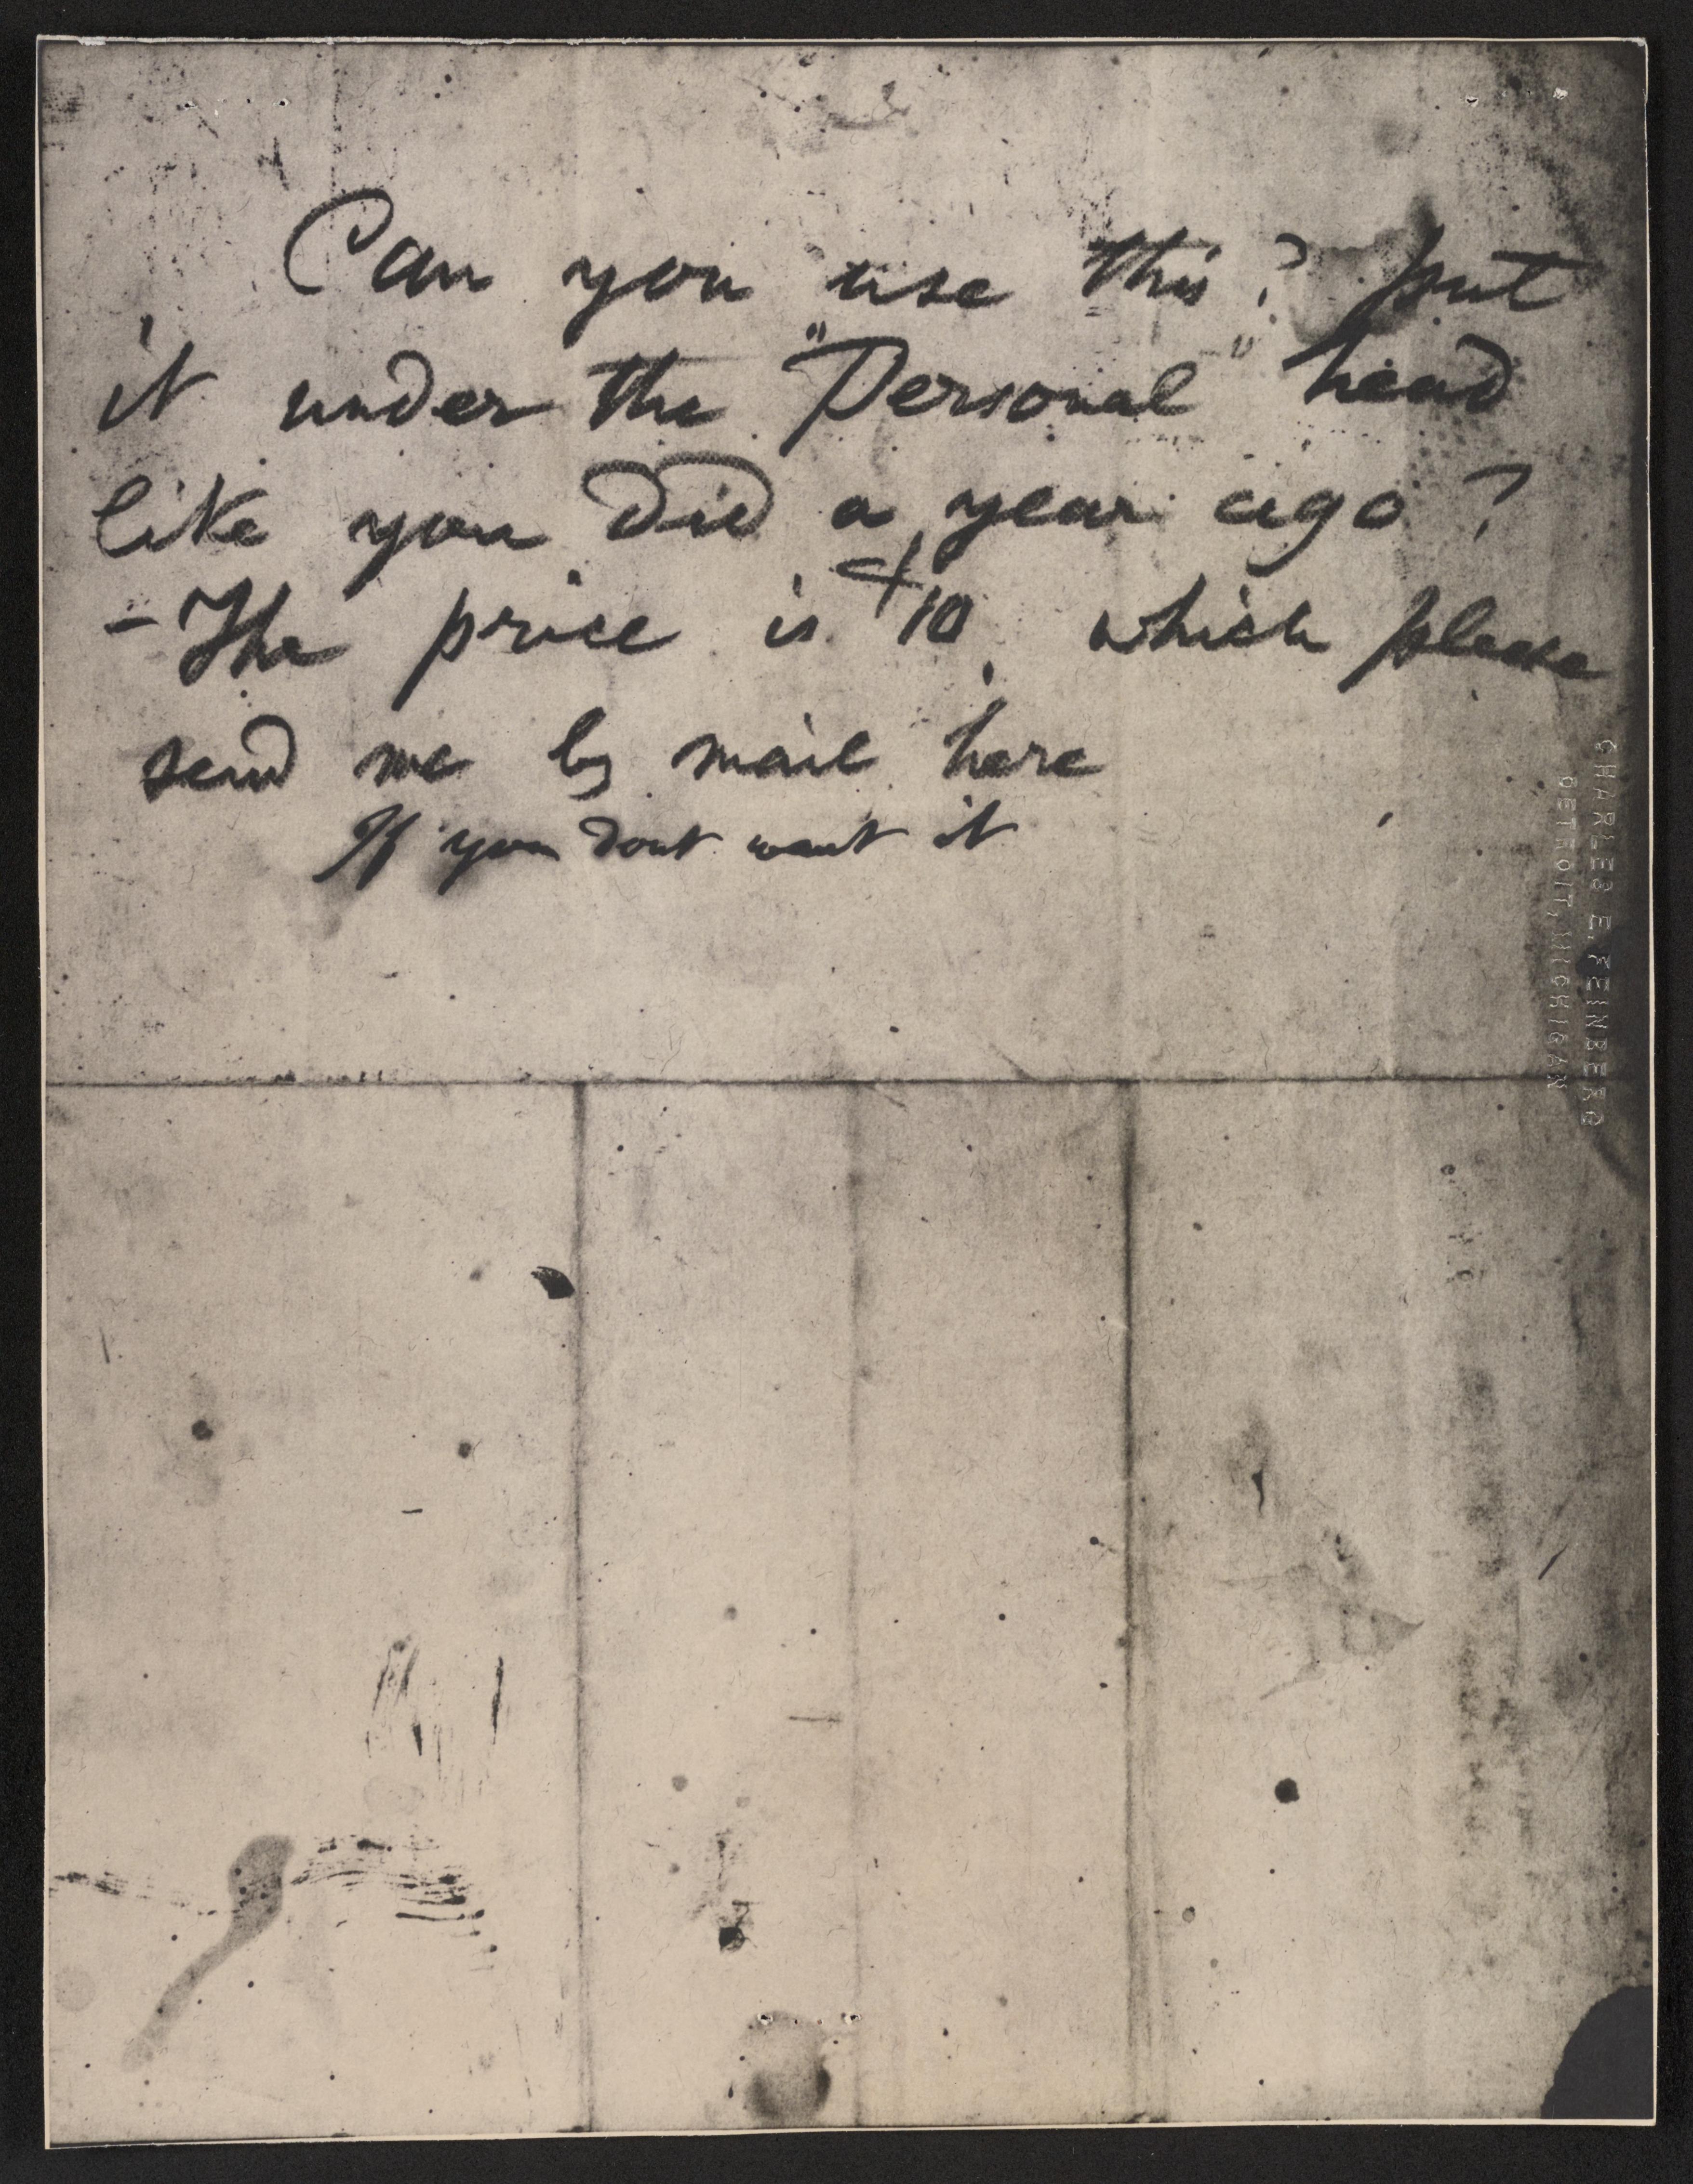 Can you use this? put
it under the "Personal" head
like you did a year ago?
– The price is $10, which please
send me by mail here
If you dont want it
CHARLES E. FEINBERG
DETROIT, MICHIGAN